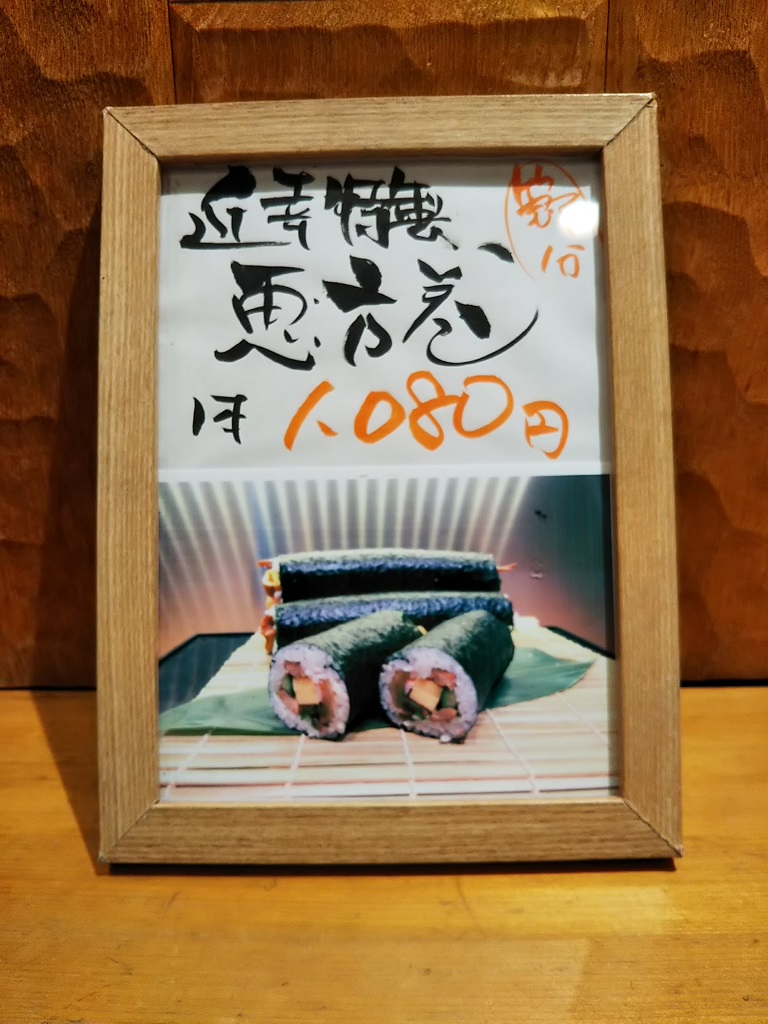 近幸特製、
恵方巻
1本 1,080円